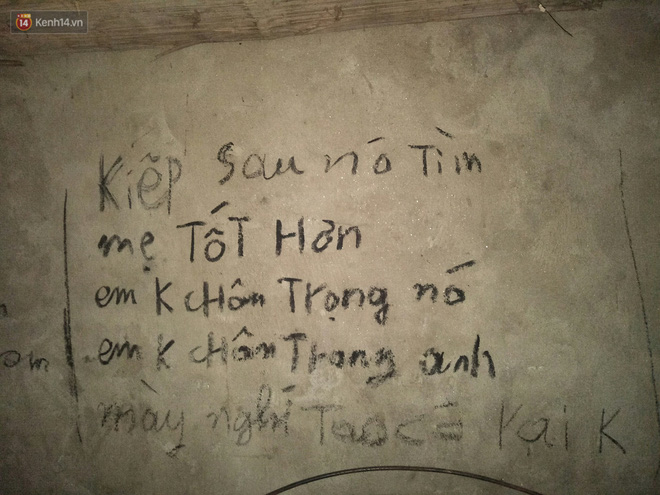 14 Kenh14.vn
Kiếp sau nó Tìm
mẹ TốT Hơn
em K cHân Trọng nó
em K cHân Trọng anh
mày nghĩ Tao có Kại K
om